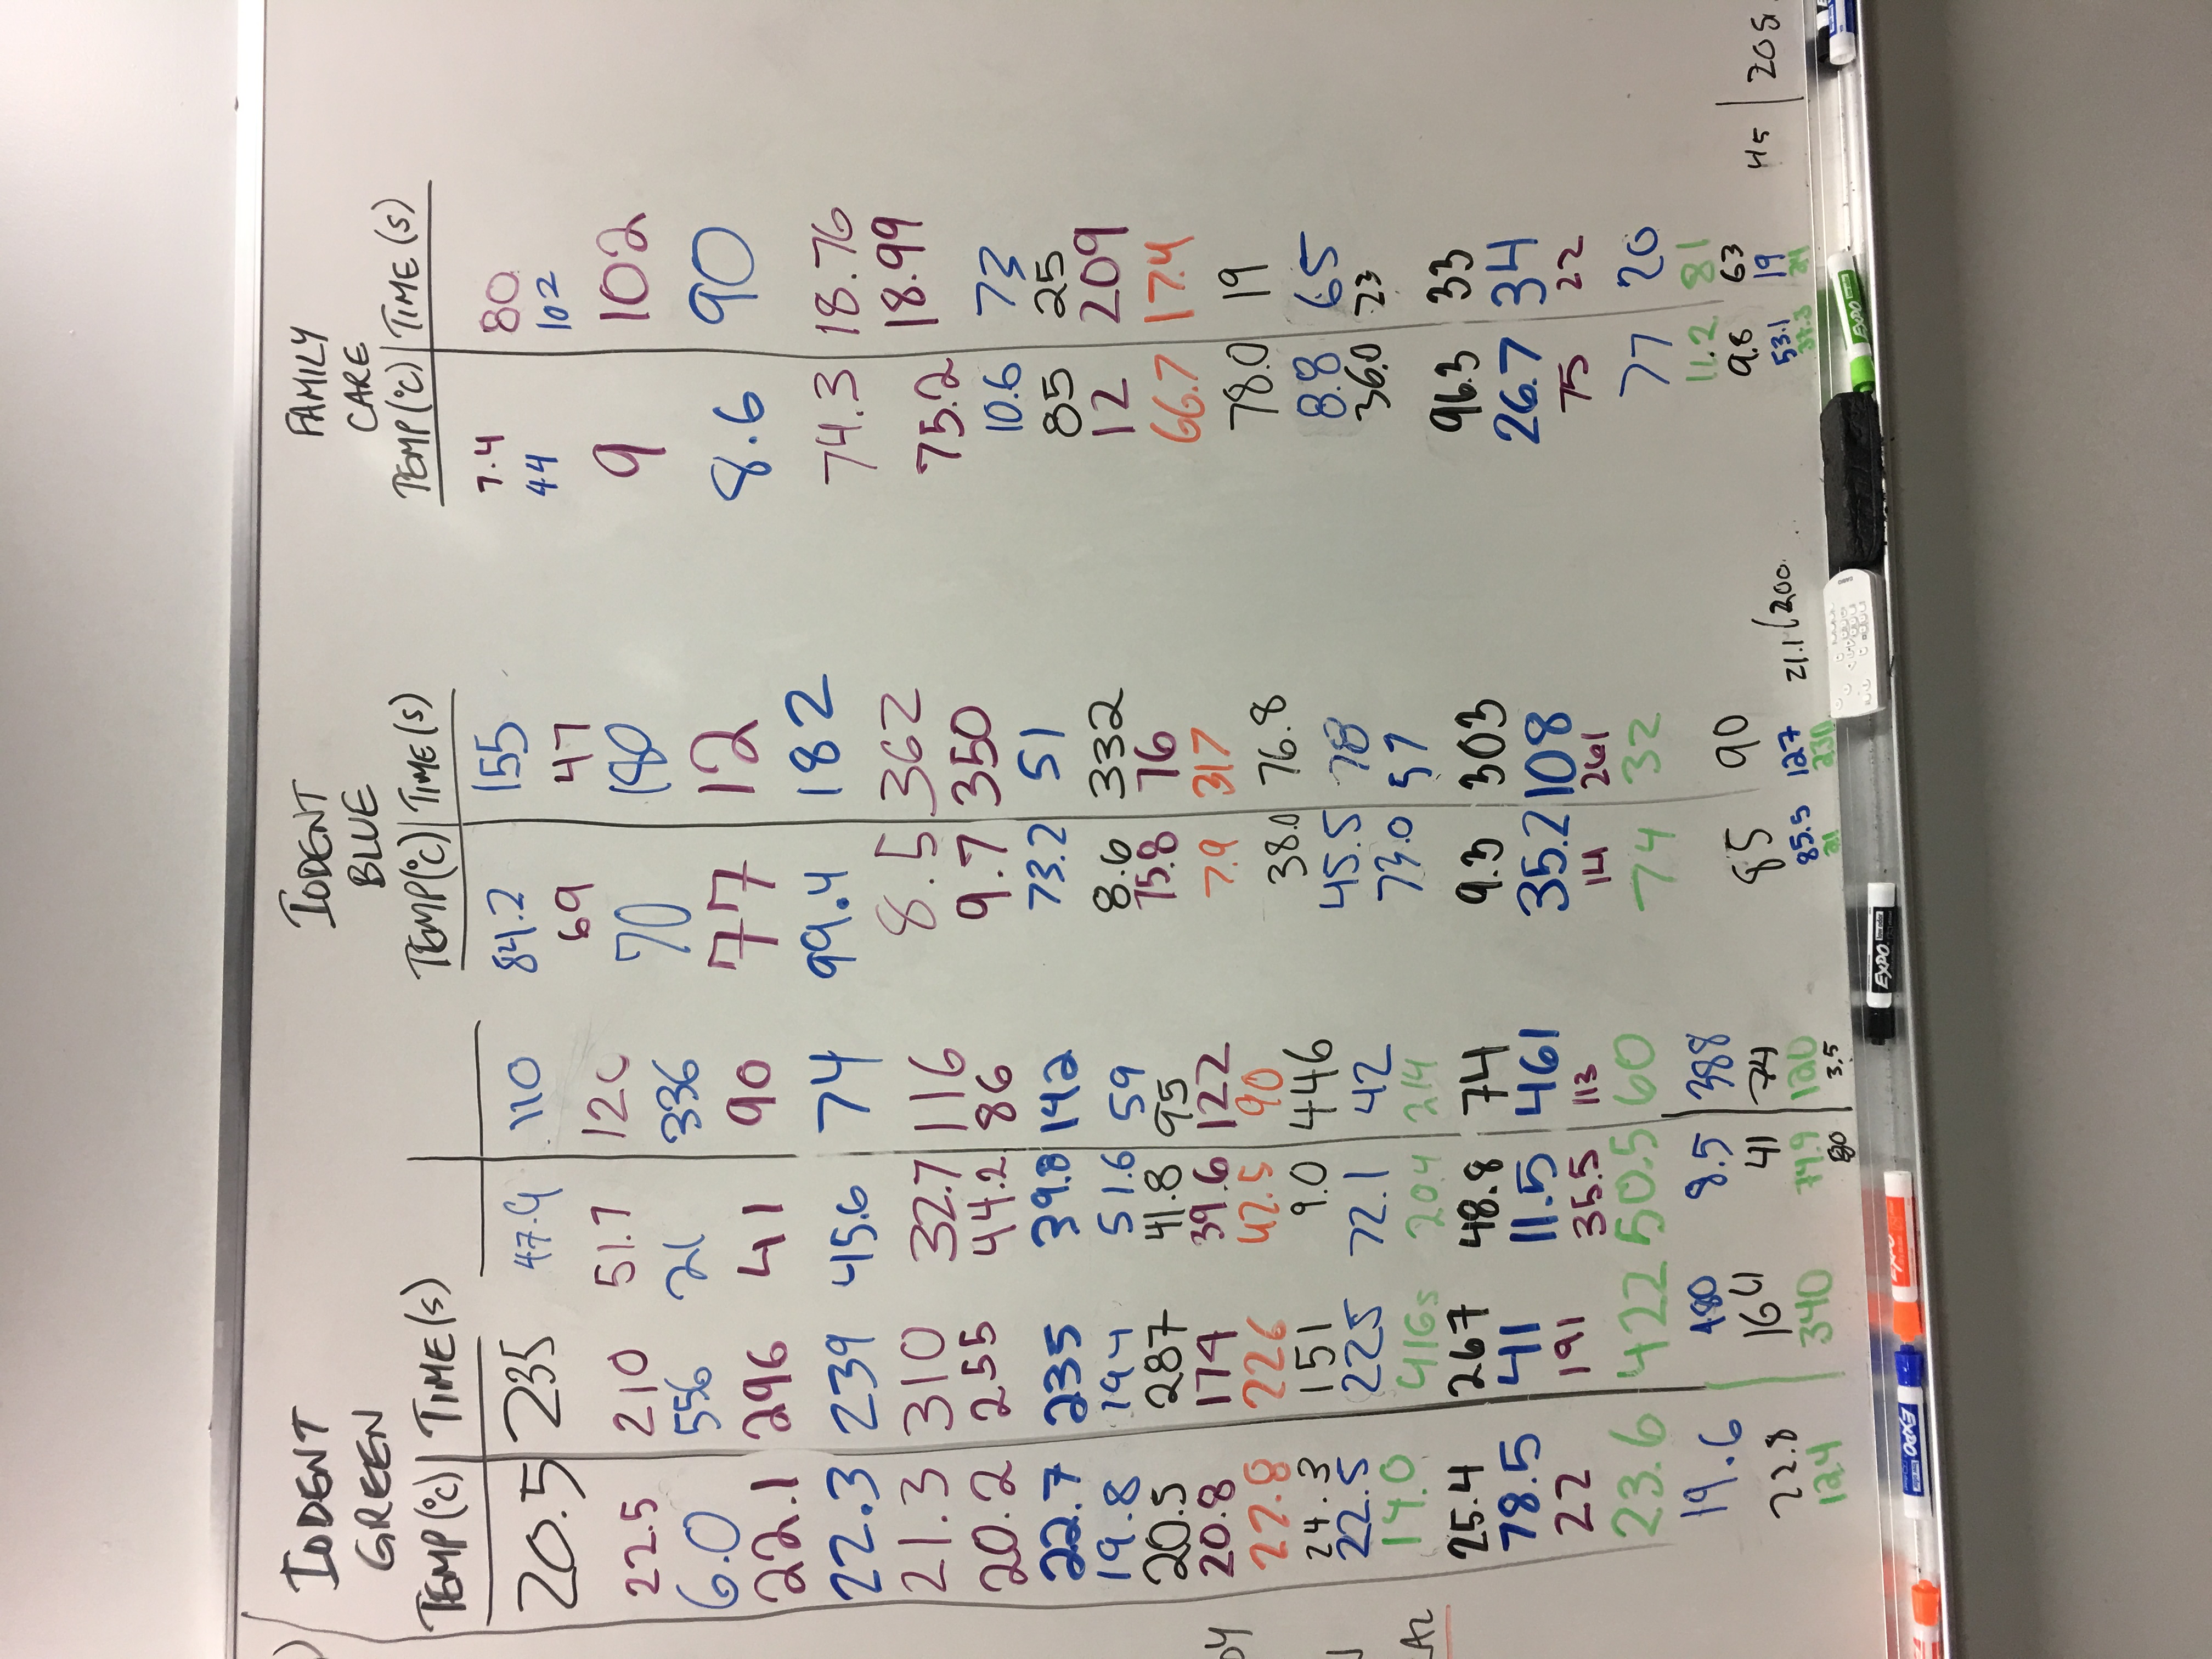 IODENT GREEN
TEMP(°C) | TIME(s)
20.5 235 47.9 110
22.5 210 51.7
6.0 556 21 336
22.1 296 41 90
22.3 239 45.6 74
21.3 310 32.7 116
20.2 255 44.2 86
22.7 235 39.8 142
19.8 194 51.6 59
20.5 287 41.8 95
20.8 174 39.6 122
22.8 226 42.5 90
24.3 151 9.0 446
22.5 225 72.1 42
14.0 416s 20.4 214
25.4 267 48.8 74
78.5 41 11.5 461
22 191 35.5 113
23.6 422 50.5 60
19.6 480 8.5 388
22.8 164 41 74
12.4 340 74.9 120
80 3.5
IODENT BLUE
TEMP(°C) | TIME(s)
84.2 155
69 47
70 180
77 12
99.4 182
8.5 362
9.7 350
73.2 51
8.6 332
75.8 76
7.9 317
38.0 76.8
45.5 78
73.0 57
9.3 303
35.2 108
14 261
74 32
85 90
85.5 127
21 231
21.1 | 200.
FAMILY CARE
TEMP(°C) | TIME(s)
7.4 80
44 102
9 102
8.6 90
74.3 18.76
75.2 18.99
10.6 73
85 25
12 209
66.7 17.4
78.0 19
8.8 65
36.0 23
96.3 33
26.7 34
75 22
77 20
11.2 81
9.8 63
53.1 19
37.3 24
45 | 20s.
EXPO
EXPO
EXPO